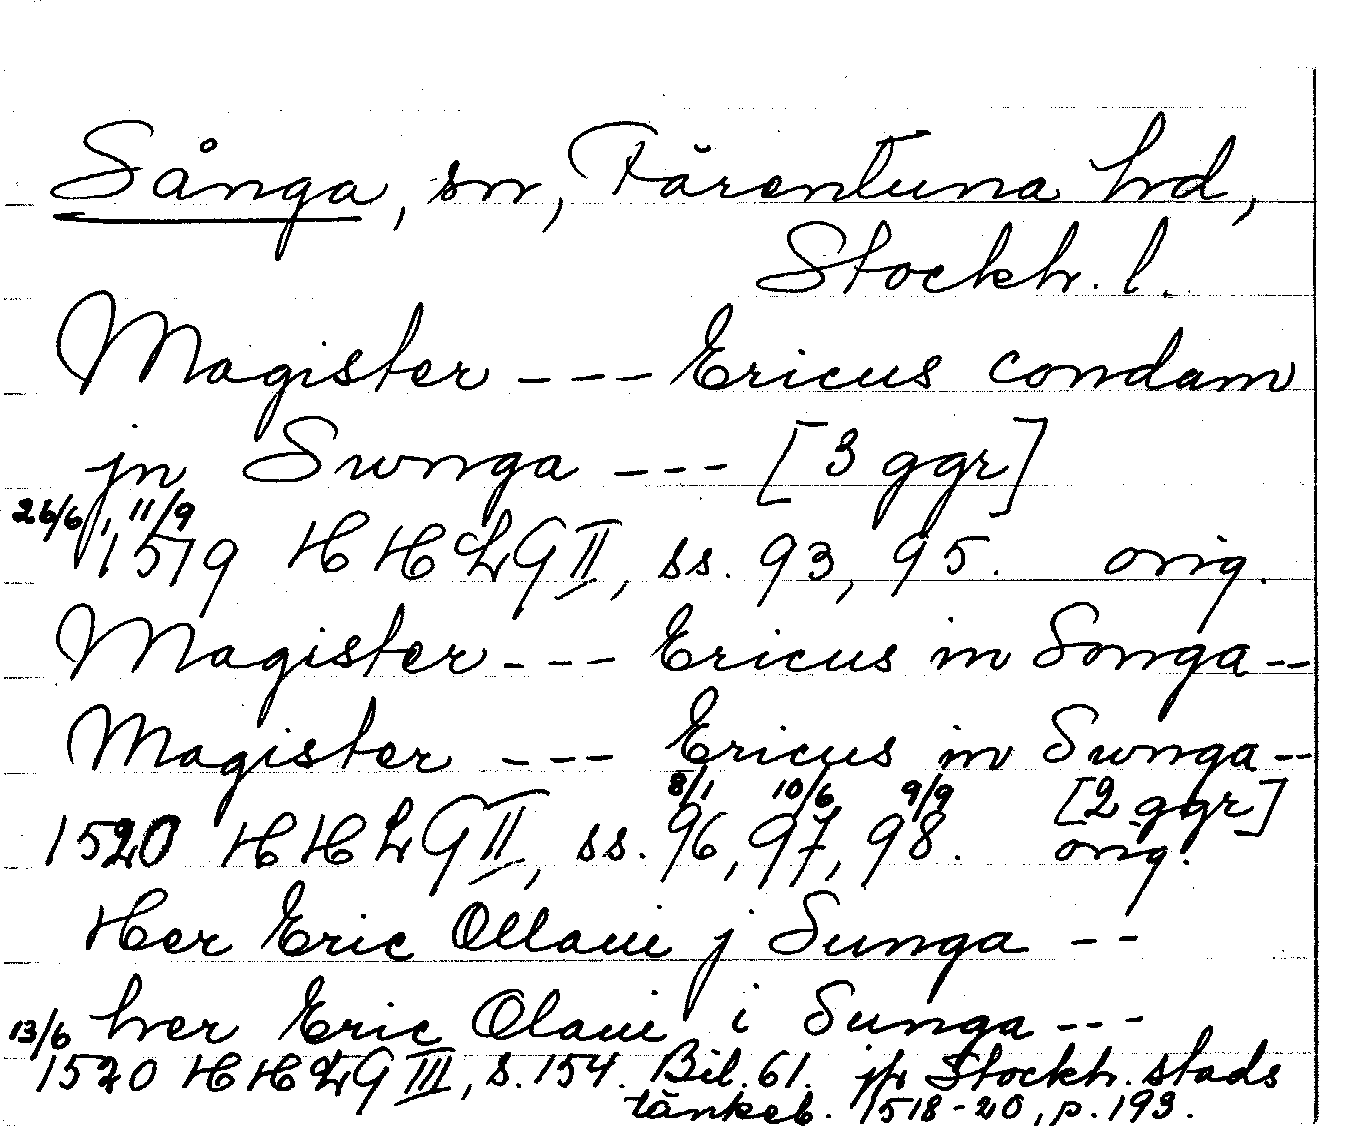 Sånga, sn, Färentuna hd,
Stockh. l.
Magister --- Ericus condam
jn Swnga --- [3 ggr]
26/6, 11/9
1519 HHLG II, ss. 93, 95. orig.
Magister --- Ericus in Songa --
Magister --- Ericus in Swnga --
8/1 10/6 9/9 [2 ggr]
1520 HHLG II, ss. 96, 97, 98. orig.
Her Eric Ollaui j Sunga --
her Eric Olaui i Sunga ---
13/6
1520 HHLG III, s. 154. Bil. 61. jfr Stockh. stads
tänkeb. 1518-20, p. 193.